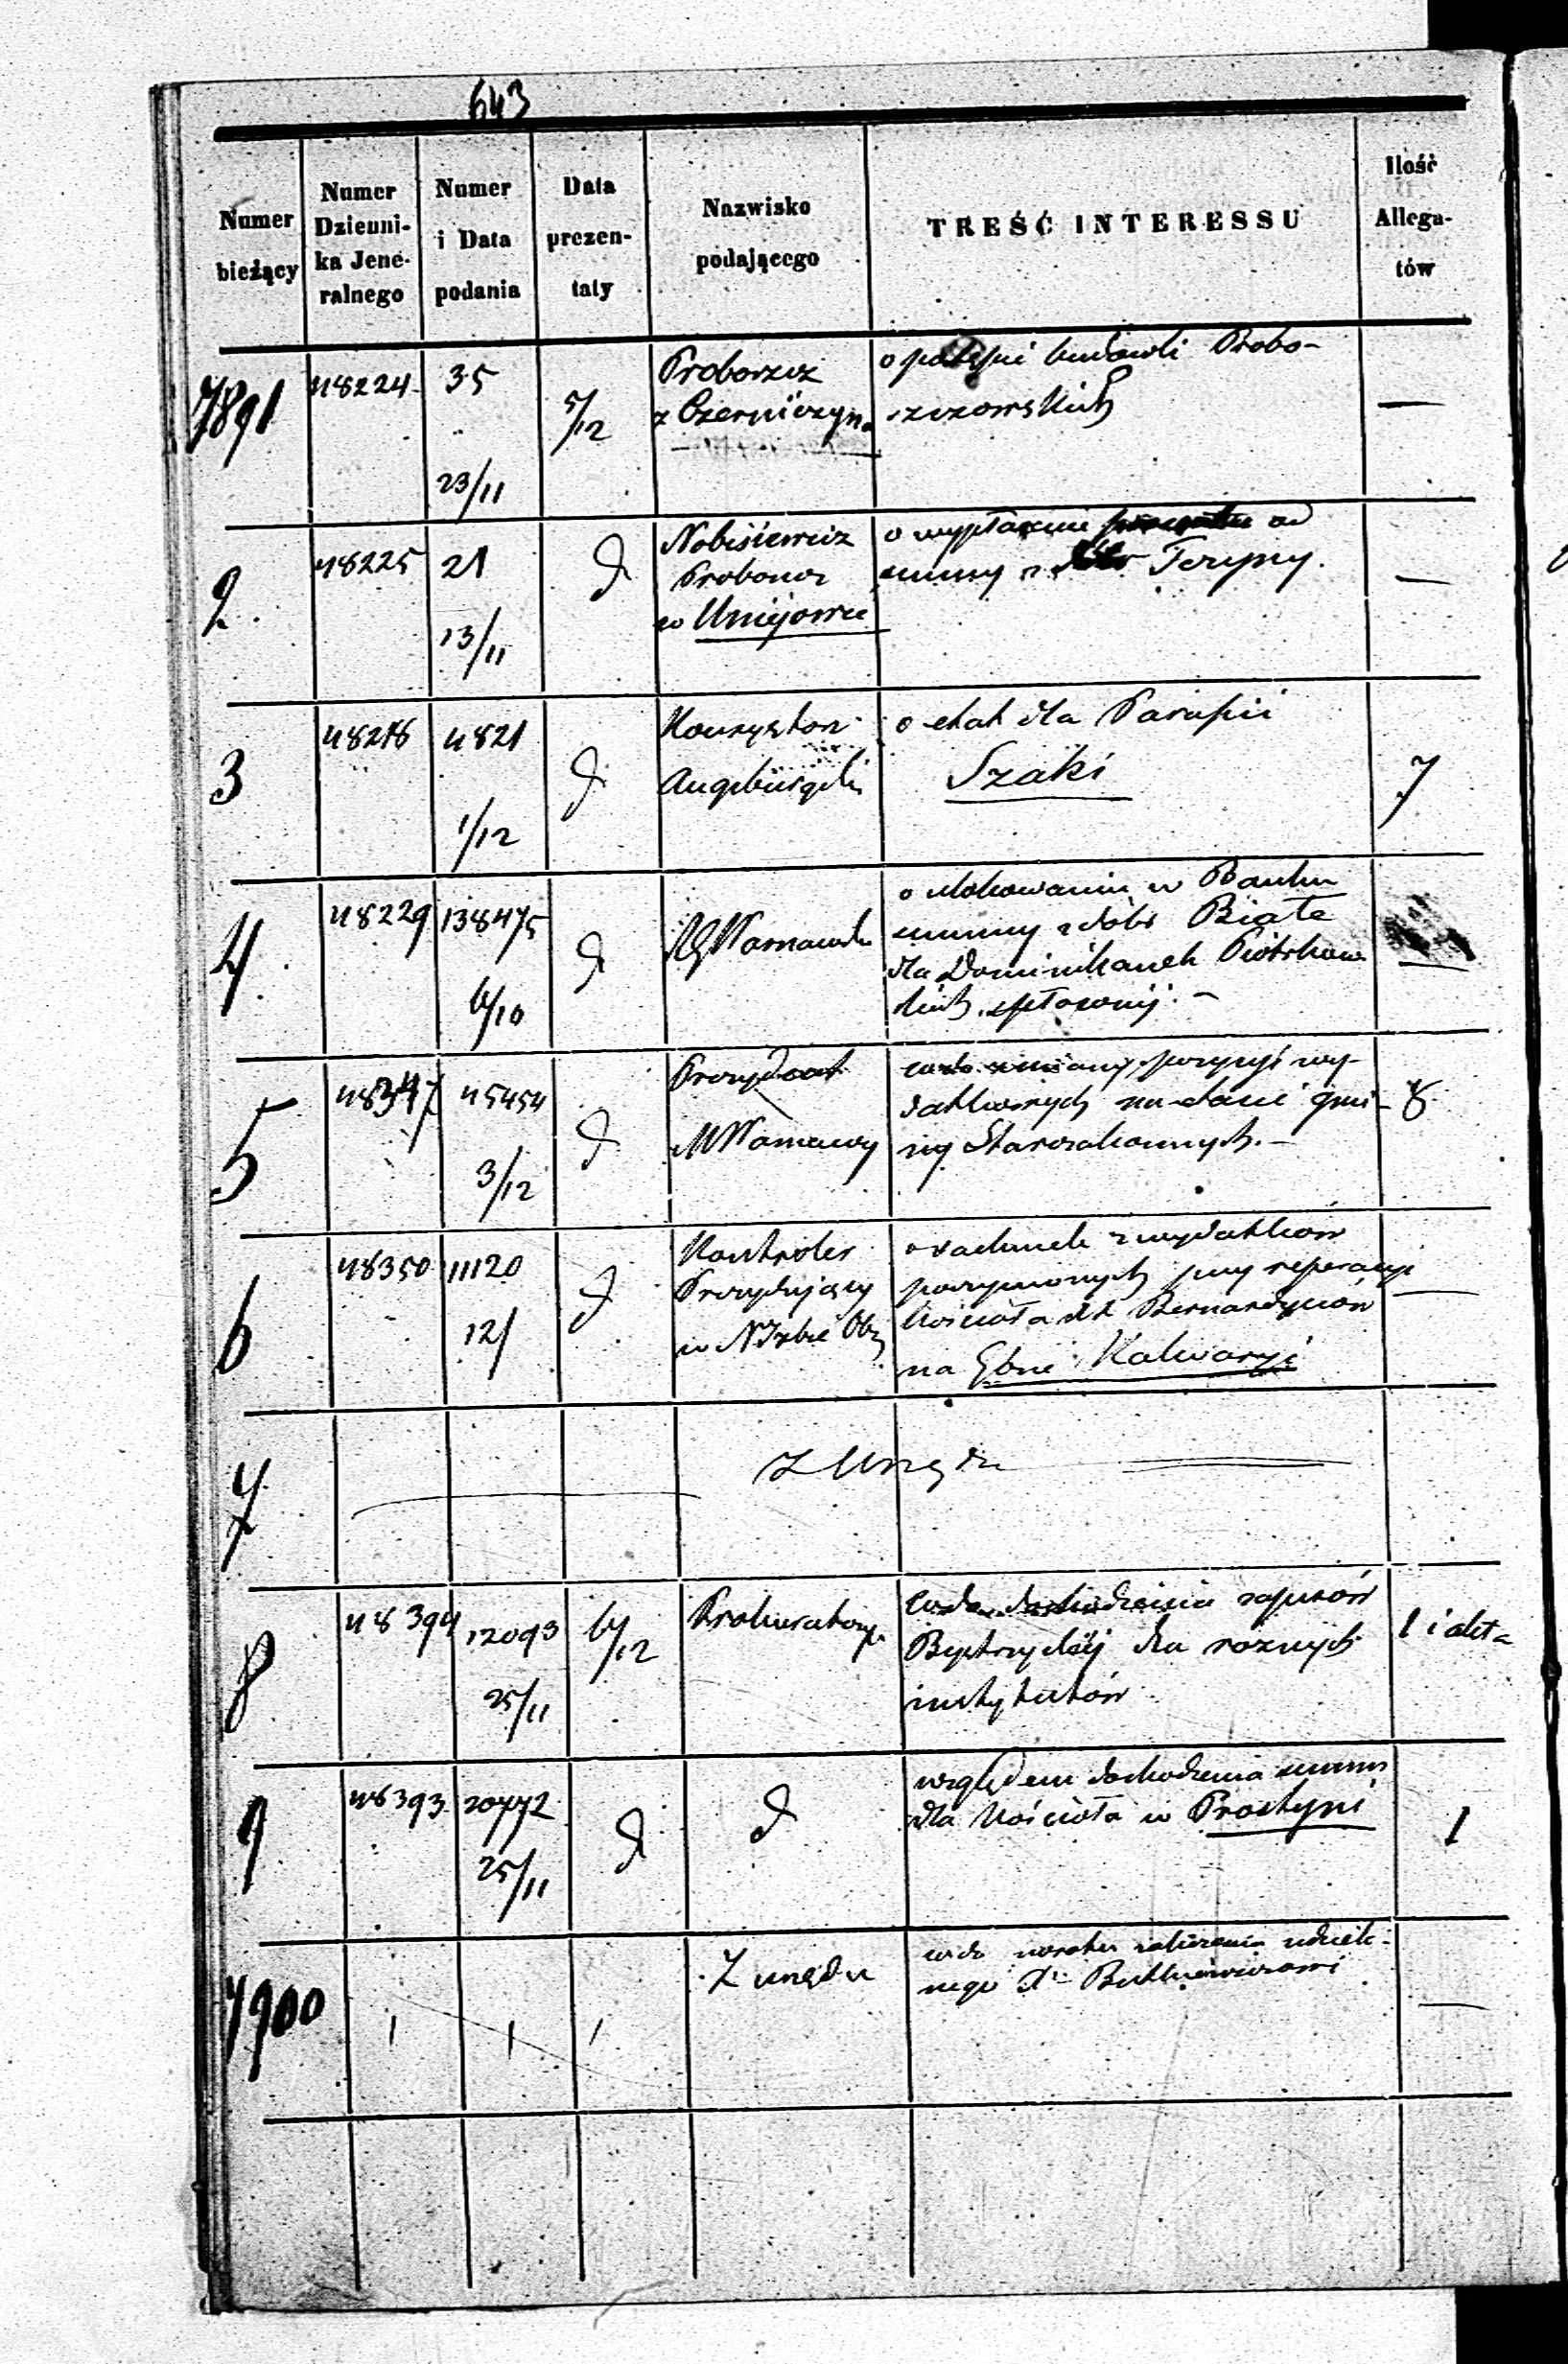 643
Numer bieżący
Numer Dzienni-ka Jene-ralnego
Numer i Data podania
Data prezen-taty
Nazwisko podającego
TREŚĆ INTERESSU
Ilość Allega-tów
7891
48224
35
23/11
5/12
Proboszcz
z Czerniczyna
o postępie budowli Probo-
szczowskich
—
2
48225
21
13/11
d
Proboszcz
w Uniejowie
o wypłacenie
summy z dóbr Teryny.
—
3
4821
1/12
d
Konsystorz
Augustowski
o etat dla Parafii
Szaki
7
4
48229
138475
6/10
d
RG Warszawski
o ulokowaniu w Banku
summy z dóbr Biała
dla Dominikanek Piotrkow
skich spłaconej. —
—
5
48347
45454
3/12
d
Prezydent
M Warszawy
wzdo zmiany pozycyi wy-
datkowych na etacie gmi-
ny Starozakonnych. —
8
6
48350
11120
12/
d
Kontroler
Prezydujący
w N Izbie Obr
o rachunek z wydatków
poczynionych przy reperacyi
Kościoła XX Bernardynów
na Górze Kalwaryi
—
7
Z Urzędu
8
48394
12093
25/11
6/12
Prokuratorya
wzdo dochodzenia zapisów
Bystrzyckiej dla rożnych
instytutów
1 i akta
9
48393
20772
25/11
d
d
względem dochodzenia summ
dla Kościoła w Prostyni
1
7900
Z urzędu
wzdo
nego
—